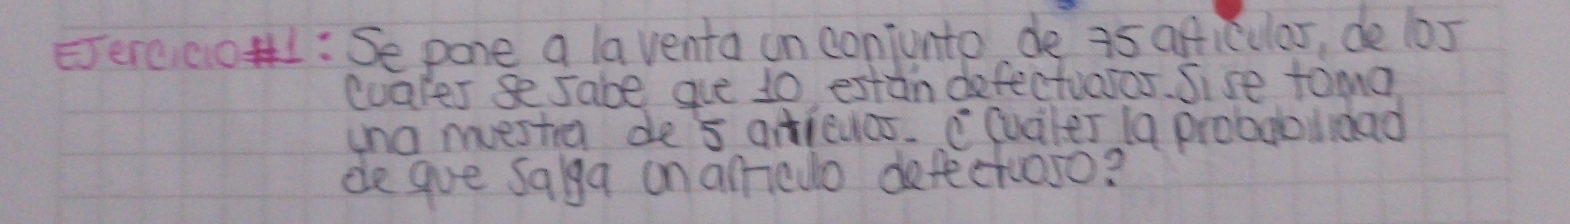 Ejercicio #1: Se pone a la venta un conjunto de 75 artículos, de los
cuales se sabe que 10 están defectuosos. Si se toma
una muestra de 5 artículos. ¿Cuál es la probabilidad
de que salga un artículo defectuoso?